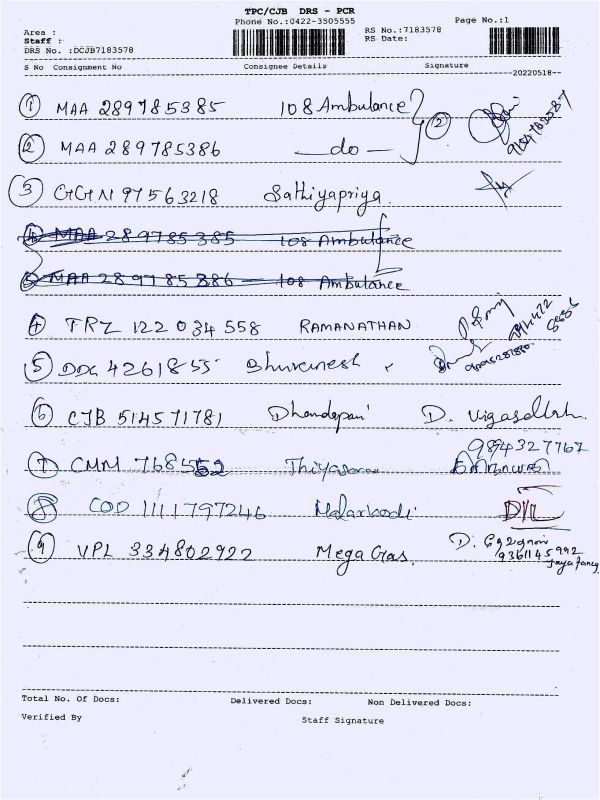 TPC/CJB DRS - PCR
Phone No.:0422-3505555 Page No.:1
Area :
Staff : RS No.:7183578
DRS No. :DCJB7183578 RS Date:
S No Consignment No Consignee Details Signature
20220518
1 MAA 289785385 108 Ambulance 2
2 MAA 289785386 do
3 GGN 97563218 Sathiyapriya
4 MAA 289785385 108 Ambulance
5 MAA 289785386 108 Ambulance
4 TRZ 122 034 558 RAMANATHAN
5 4261855 Bhuvanesh
6 CJB 514571781 Dhandapani D.
9894327767
7 CMM 768552
8 COD 1111797246 Malarkodi
9 VPL 334802922 Mega Gas. D.
9361145992
Total No. Of Docs: Delivered Docs: Non Delivered Docs:
Verified By Staff Signature